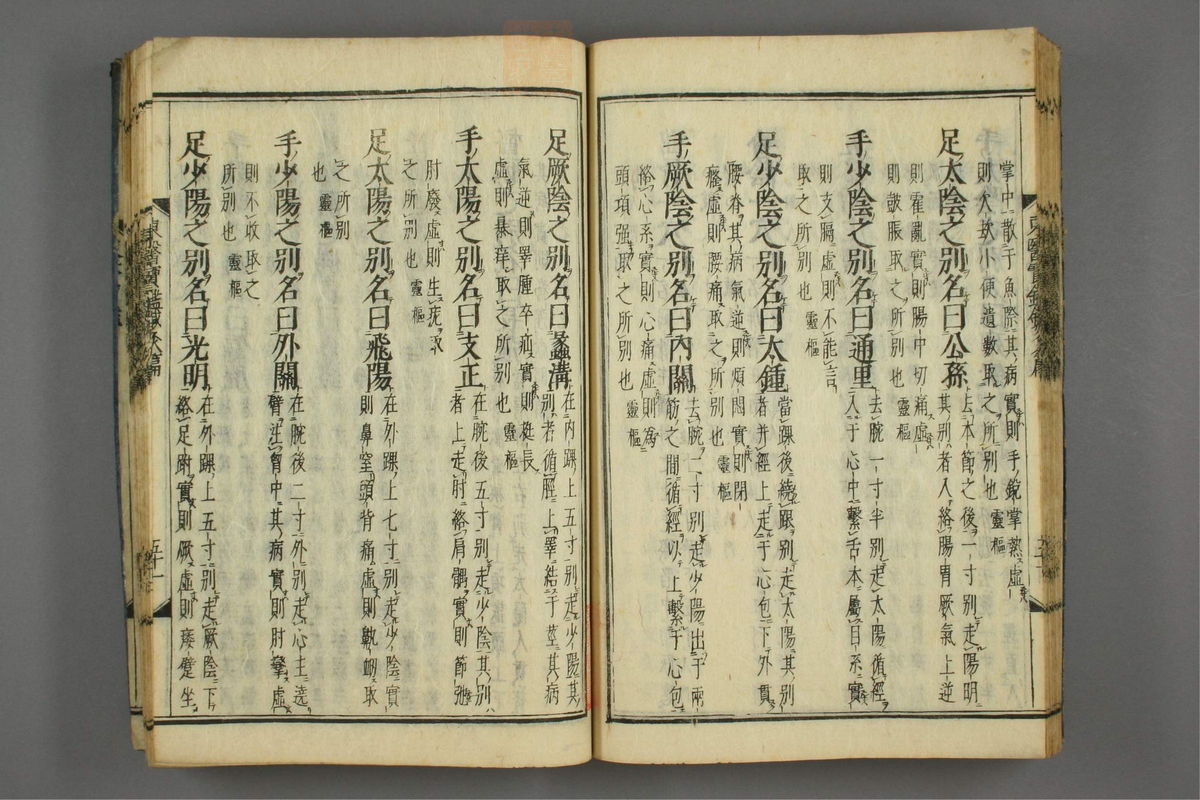 掌中散于魚際其病實則手銳掌熱虛
則欠㰦小便遺數取之所別也靈樞
足太陰之別名曰公孫去本節之後一寸別走陽明
其別者入絡陽胃厥氣上逆
則霍亂實則腸中切痛虛
則皷脹取之所別也靈樞
手少陰之別名曰通里去腕一寸半別起太陽循經
入于心中繫舌本屬目系實
則支膈虛則不能言
取之所別也靈樞
足少陰之別名曰太鍾當踝後繞跟別走太陽其別
者并經上走于心包下外貫
腰脊其病氣逆則煩悶實則閉
癃虛則腰痛取之所別也靈樞
手厥陰之別名曰內關去腕二寸別走少陽出于兩
筋之間循經以上繫于心包
絡心系實則心痛虛則為
頭項强取之所別也靈樞
足厥陰之別名曰蠡溝在內踝上五寸別走少陽其
別者循脛上睪結于莖其病
氣逆則睪腫卒疝實則挺長
虛則暴痒取之所別也靈樞
手太陽之別名曰支正在腕後五寸別走少陰其別
者上走肘絡肩髃實則節弛
肘廢虛則生疣取
之所別也靈樞
足太陽之別名曰飛陽在外踝上七寸別走少陰實
則鼻窒頭背痛虛則鼽衂取
之所別
也靈樞
手少陽之別名曰外關在腕後二寸外別走心主遶
臂注胷中其病實則肘攣虛
則不收取之
所別也靈樞
足少陽之別名曰光明在外踝上五寸別走厥陰下
絡足跗實則厥虛則痿躄坐
五十一